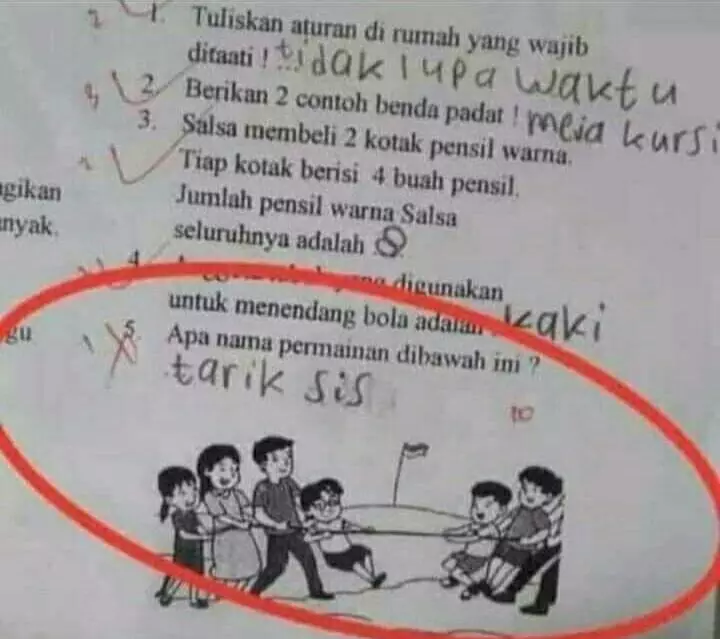 1. Tuliskan aturan di rumah yang wajib
ditaati ! tidak lupa waktu
2. Berikan 2 contoh benda padat ! meja kursi
3. Salsa membeli 2 kotak pensil warna.
Tiap kotak berisi 4 buah pensil.
agikan
Jumlah pensil warna Salsa
anyak.
seluruhnya adalah 8
4. digunakan
untuk menendang bola adalah kaki
gu
5. Apa nama permainan dibawah ini ?
tarik sis
10